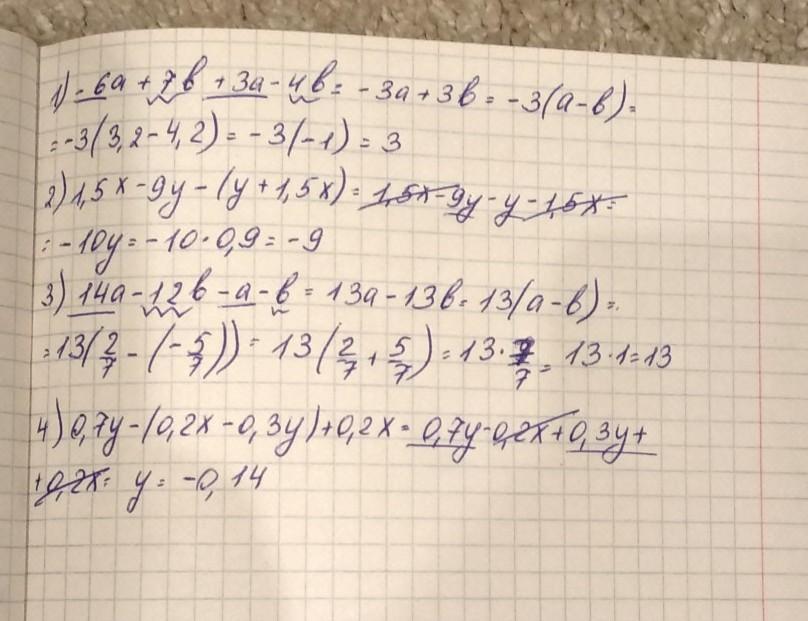 1) -6a + 7b + 3a - 4b = -3a + 3b = -3(a-b) =
= -3(3,2 - 4,2) = -3(-1) = 3
2) 1,5x - 9y - (y + 1,5x) = 1,5x - 9y - y - 1,5x =
= -10y = -10 · 0,9 = -9
3) 14a - 12b - a - b = 13a - 13b = 13(a-b) =
= 13(2/7 - (-5/7)) = 13(2/7 + 5/7) = 13 · 7/7 = 13 · 1 = 13
4) 0,7y - (0,2x - 0,3y) + 0,2x = 0,7y - 0,2x + 0,3y +
+ 0,2x = y = -0,14